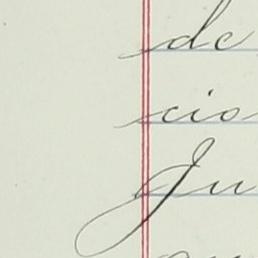 de
cio
Ju